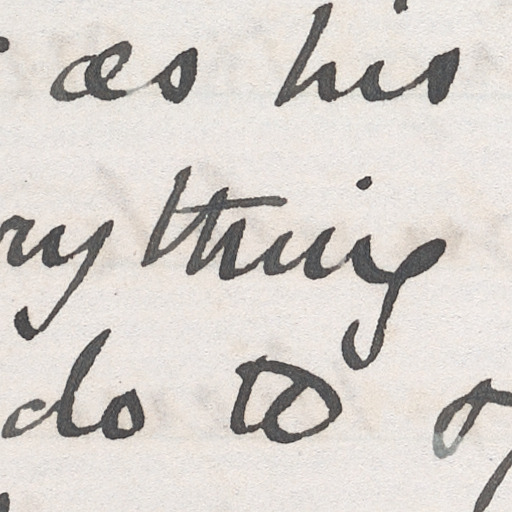 as his
rything
do to